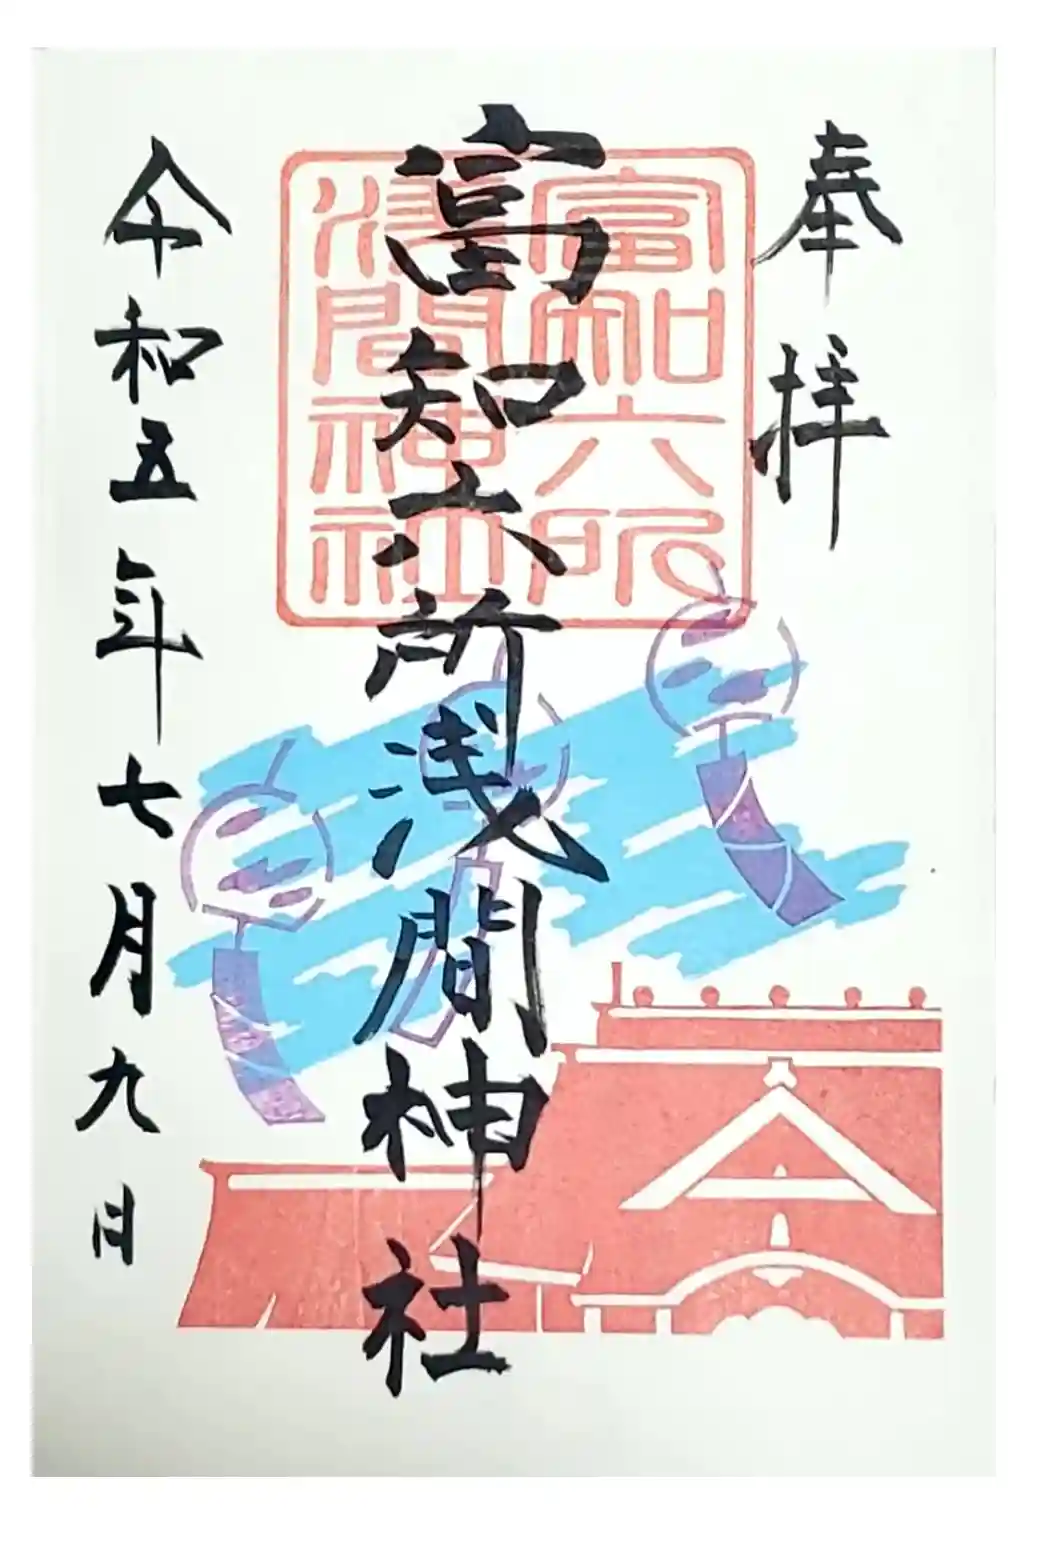 奉拝
富知六所浅間神社
富知六所
浅間神社
令和五年七月九日